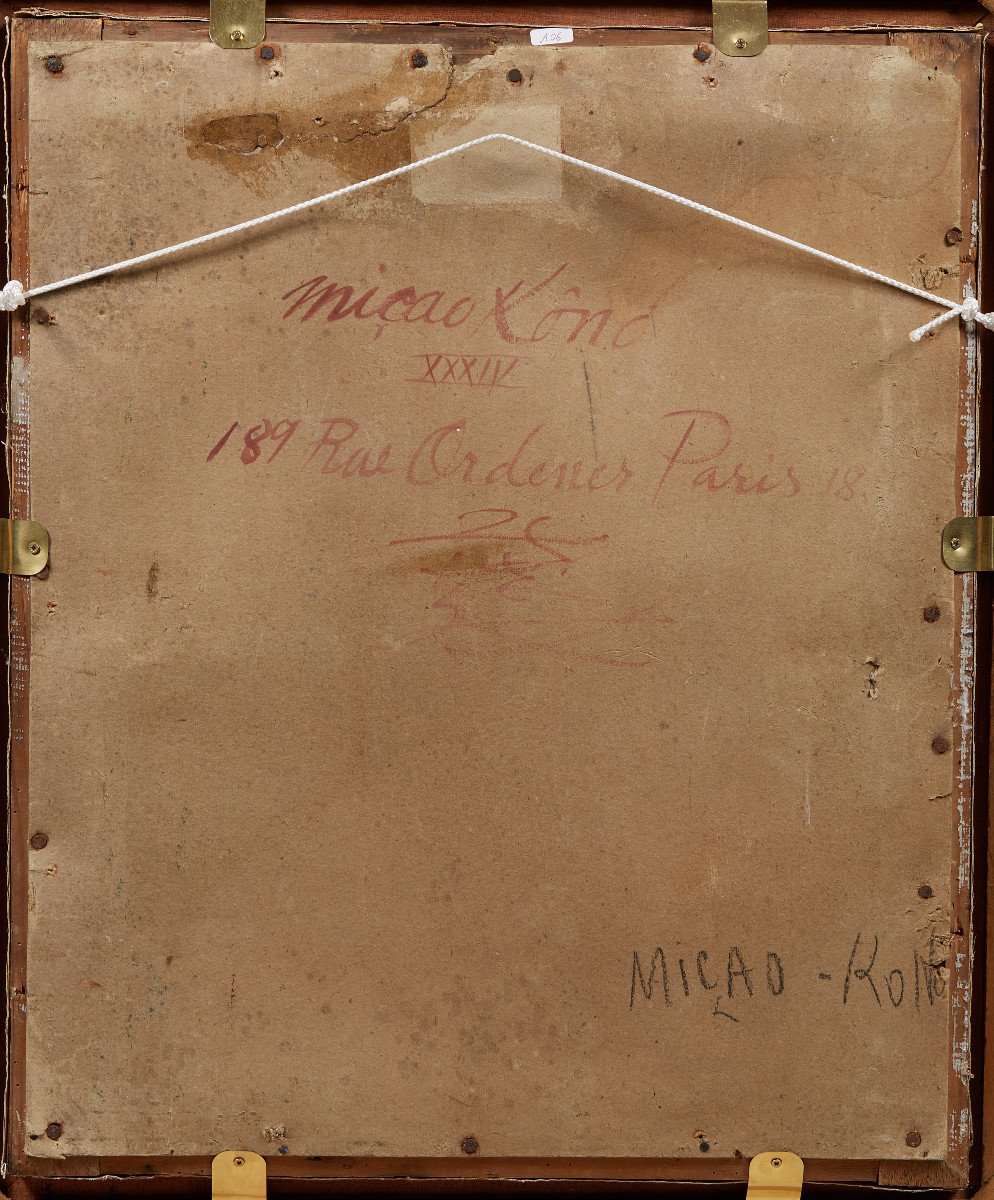 miçao Kôno
XXXIV
189 Rue Ordener Paris 18.
MiÇAO - KONO